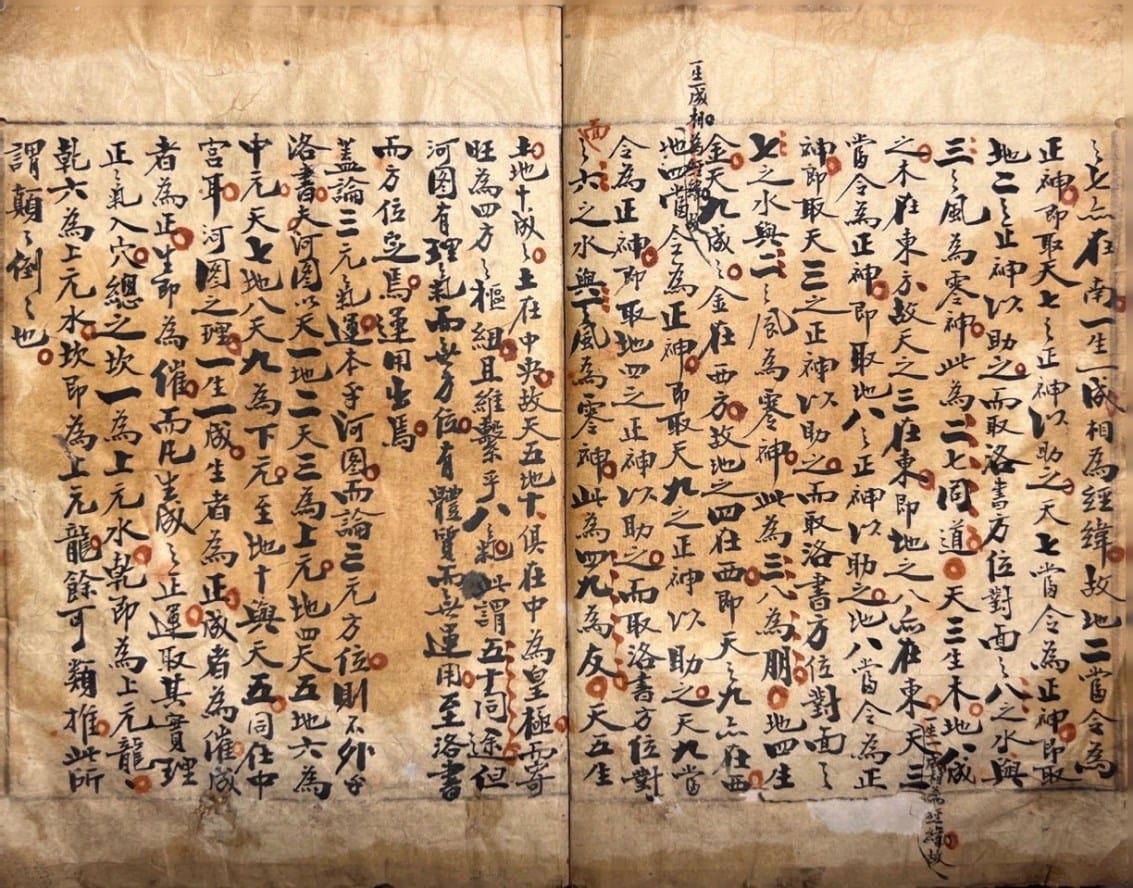 之七亦在南一生一成相為經緯故地二當令為
正神即取天七之正神以助之天七當令為正神即取
地二之正神以助之而取洛書方位對面之八之水與
三之風為零神此為二七同道天三生木地八成
之木在東方故天之三在東即地之八亦在東天三
一生一成相為經緯故
當令為正神即取地八之正神以助之地八當令為正
神即取天三之正神以助之而取洛書方位對面之
七之水與二之風為零神此為三八為朋地四生
金天九成之金在西方故地之四在西即天之九亦在西
一生一成相為經緯故
地四當令為正神即取天九之正神以助之天九當
令為正神即取地四之正神以助之而取洛書方位對
面之六之水與一之風為零神此為四九為友天五生
土地十成之土在中央故天五地十俱在中為皇極而寄
旺為四方之樞紐且維繫乎八之氣此謂五十同途但
河图有理氣而無方位有體質而無運用至洛書
而方位定焉運用出焉
蓋論三元氣運本乎河图而論三元方位則不外乎
洛書夫河图以天一地二天三為上元地四天五地六為
中元天七地八天九為下元至地十與天五同住中
宮耳河图之理一生一成生者為正成者為催成
者為正生即為催而凡生成之正運取其實理
正之氣入穴總之坎一為上元水乾即為上元龍
乾六為上元水坎即為上元龍餘可類推此所
謂顛之倒之也